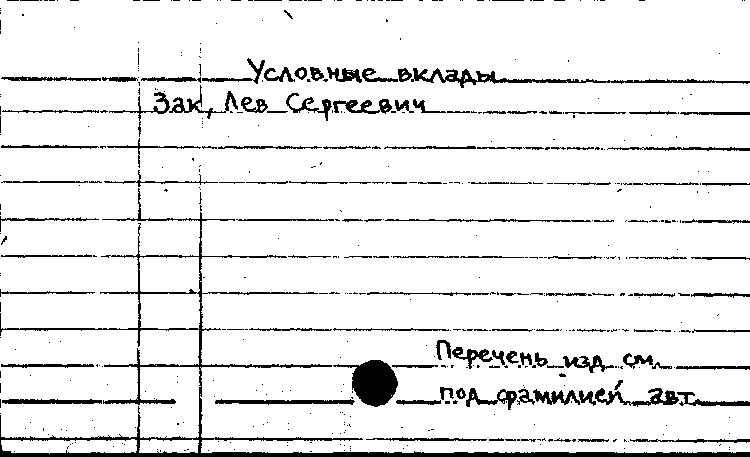 Условные вклады
Зак, Лев Сергеевич
Перечень изд см.
под фамилией авт.